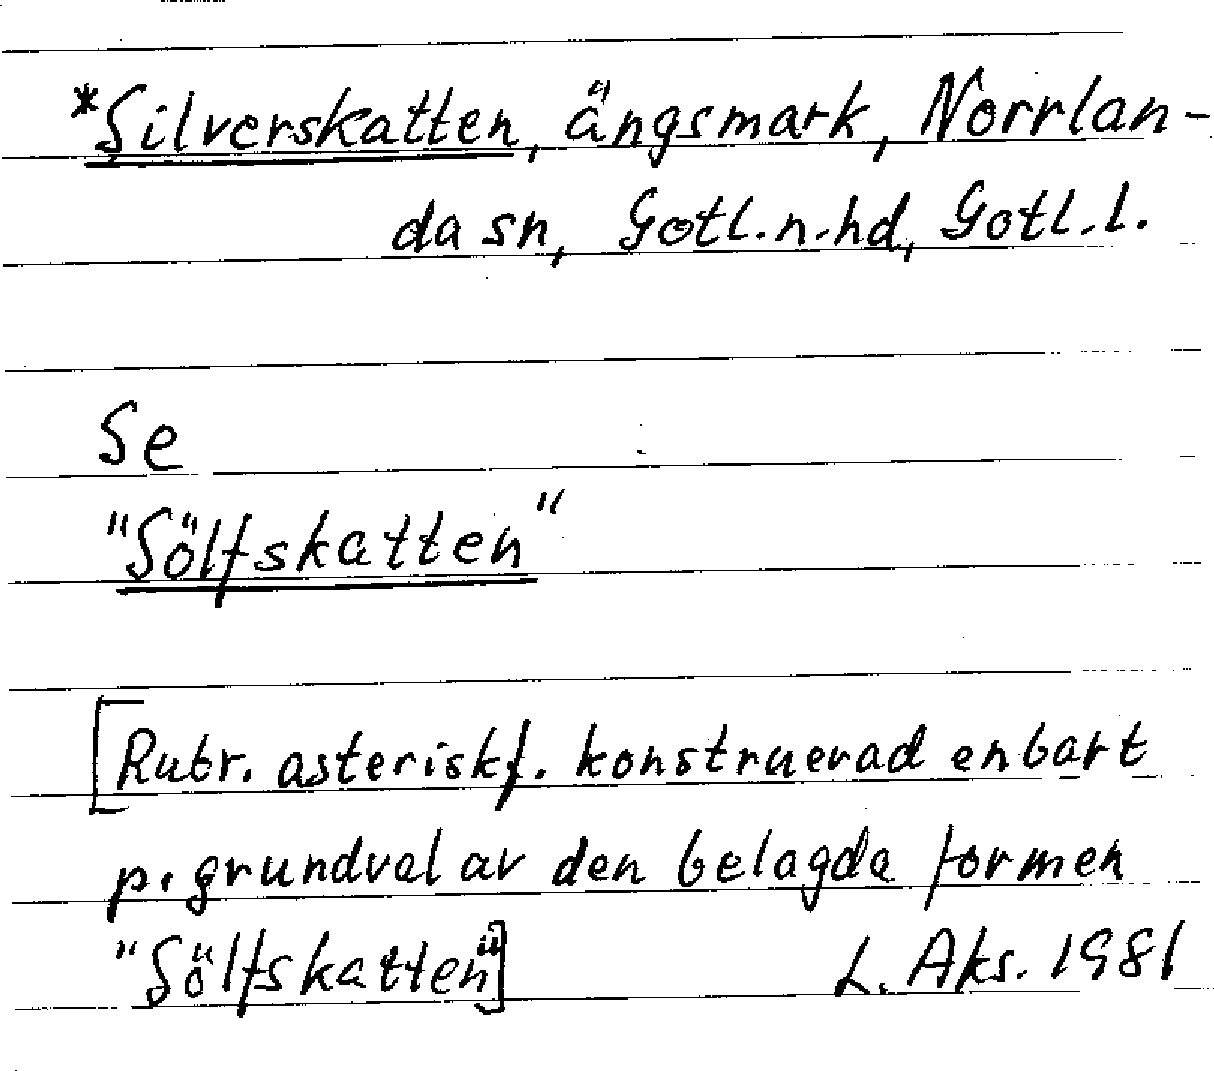 *Silverskatten, ängsmark, Norrlan-
da sn, Gotl. n. hd, Gotl. l.
Se
"Sölfskatten"
[Rubr. asteriskf. konstruerad enbart
p. grundval av den belagda formen
"Sölfskatten"] L. Aks. 1981